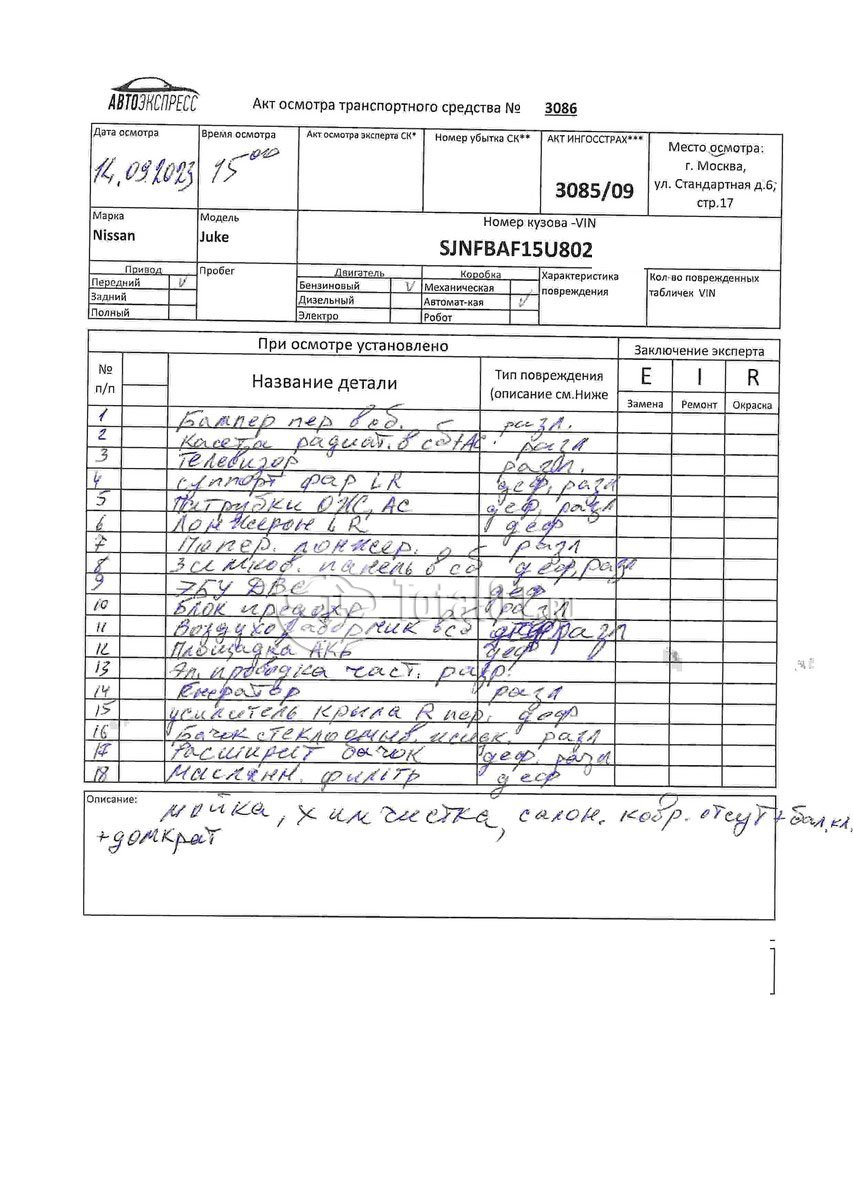 АВТОЭКСПРЕСС
Акт осмотра транспортного средства № 3086
Дата осмотра Время осмотра Акт осмотра эксперта СК* Номер убытка СК** АКТ ИНГОССТРАХ*** Место осмотра:
г. Москва,
ул. Стандартная д.6,
стр.17
14.09.2023 15 00
3085/09
Марка Модель Номер кузова -VIN
Nissan Juke SJNFBAF15U802
Привод Пробег Двигатель Коробка Характеристика повреждения Кол-во поврежденных табличек VIN
Передний V Бензиновый V Механическая
Задний Дизельный Автомат-кая V
Полный Электро Робот
При осмотре установлено Заключение эксперта
№ п/п Название детали Тип повреждения (описание см.Ниже E I R
Замена Ремонт Окраска
1 Бампер пер в сб. разл.
2 Касета радиат. в сб+АС. разл
3 Телевизор разл.
4 суппорт фар LR деф, разл
5 Патрубки ОЖ, АС деф, разл
6 Лонжерон LR деф
7 Попер. лонжер. разл
8 панель в сб деф, разл
9 ЭБУ ДВС деф
10 Блок предохр разл
11 Воздухозаборник в сб разл
12 Площадка АКБ деф
13 Эл. проводка част. разр.
14 Генератор разл
15 усилитель крыла R пер. деф
16 Бачок стеклоомыв. разл
17 Расширит бачок деф. разл
18 Маслянн. фильтр деф
Описание: мойка, химчистка, салон. ковр. отсут + бал, кл,
+домкрат
Total01.com